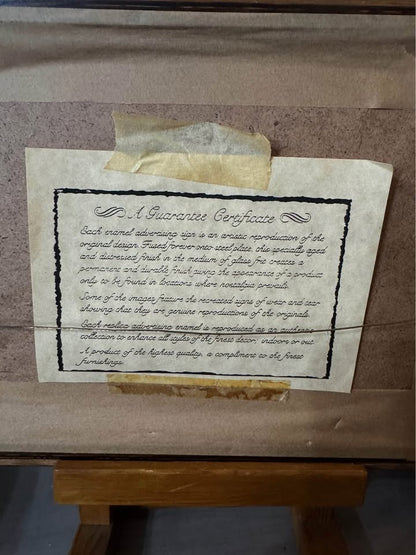 A Guarantee Certificate
Each enamel advertising sign is an artistic reproduction of the
original design. Fused forever onto steel plate, this specially aged
and distressed finish in the medium of glass frit creates a
permanent and durable finish giving the appearance of a product
only to be found in locations where nostalgia prevails.
Some of the images feature the recreated signs of wear and tear
showing that they are genuine reproductions of the originals.
Each replica advertising enamel is reproduced as an authentic
collection to enhance all styles of the finest decor, indoors or out.
A product of the highest quality, a compliment to the finest
furnishings.